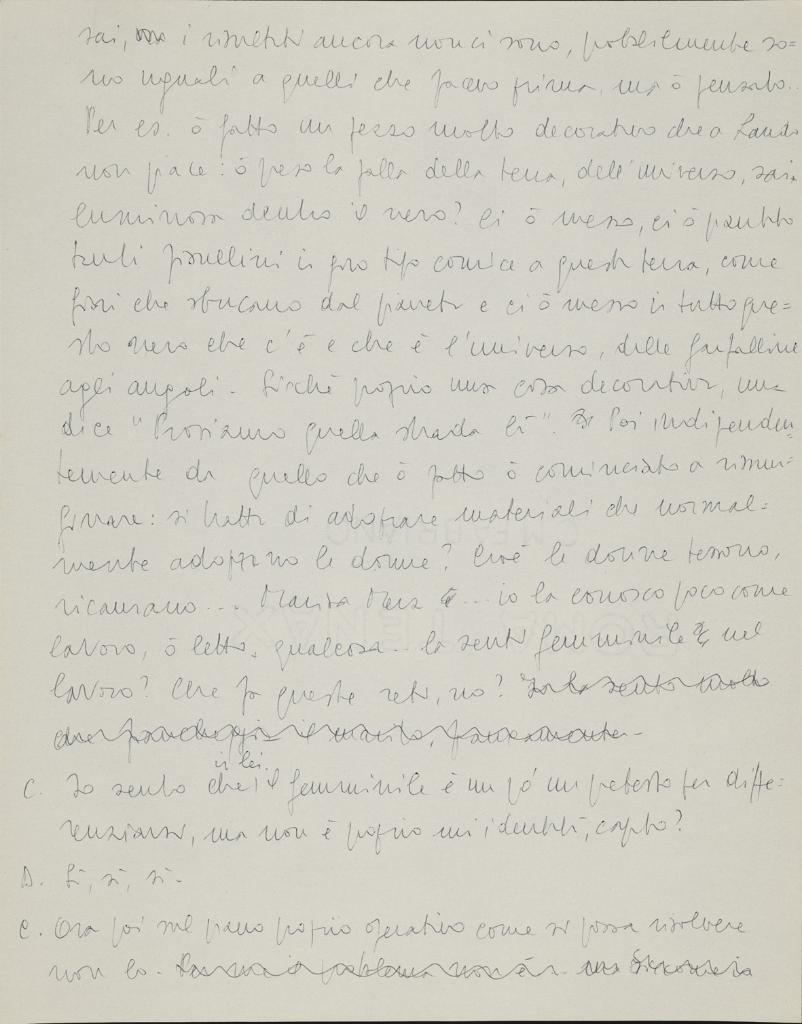 sai, ma i risultati ancora non ci sono, possibilmente so=
no uguali a quelli che facevo prima, ma ò pensato..
Per es. ò fatto un pezzo molto decorativo che a
non piace: ò preso la palla della terra, dell'universo, sai
luminosa dentro il nero? Ci ò messo, ci ò
tanti in giro tipo cornice a questa terra, come
fiori che sbucano dal pianeta e ci ò messo in tutto que=
sto nero che c'è e che è l'universo, delle farfalline
agli angoli. Sicché proprio una cosa decorativa, una
dice "Proviamo quella strada lì". Poi indipenden=
temente da quello che ò fatto ò cominciato a rimu=
ginare: si tratta di adoprare materiali che normal=
mente adoprano le donne? Cioè le donne tessono,
ricamano... Marisa Merz ... io la conosco poco come
lavoro, ò letto, qualcosa.. la senti femminile nel
lavoro? Che fa queste reti, no? Io la sento molto
che il marito, francamente.
in lei.
C. Io sento che il femminile è un pò un pretesto per diffe=
renziarsi, ma non è proprio un'identità, capito?
D. Sì, sì, sì.
C. Ora poi sul piano proprio operativo come si possa risolvere
non lo. problema non è